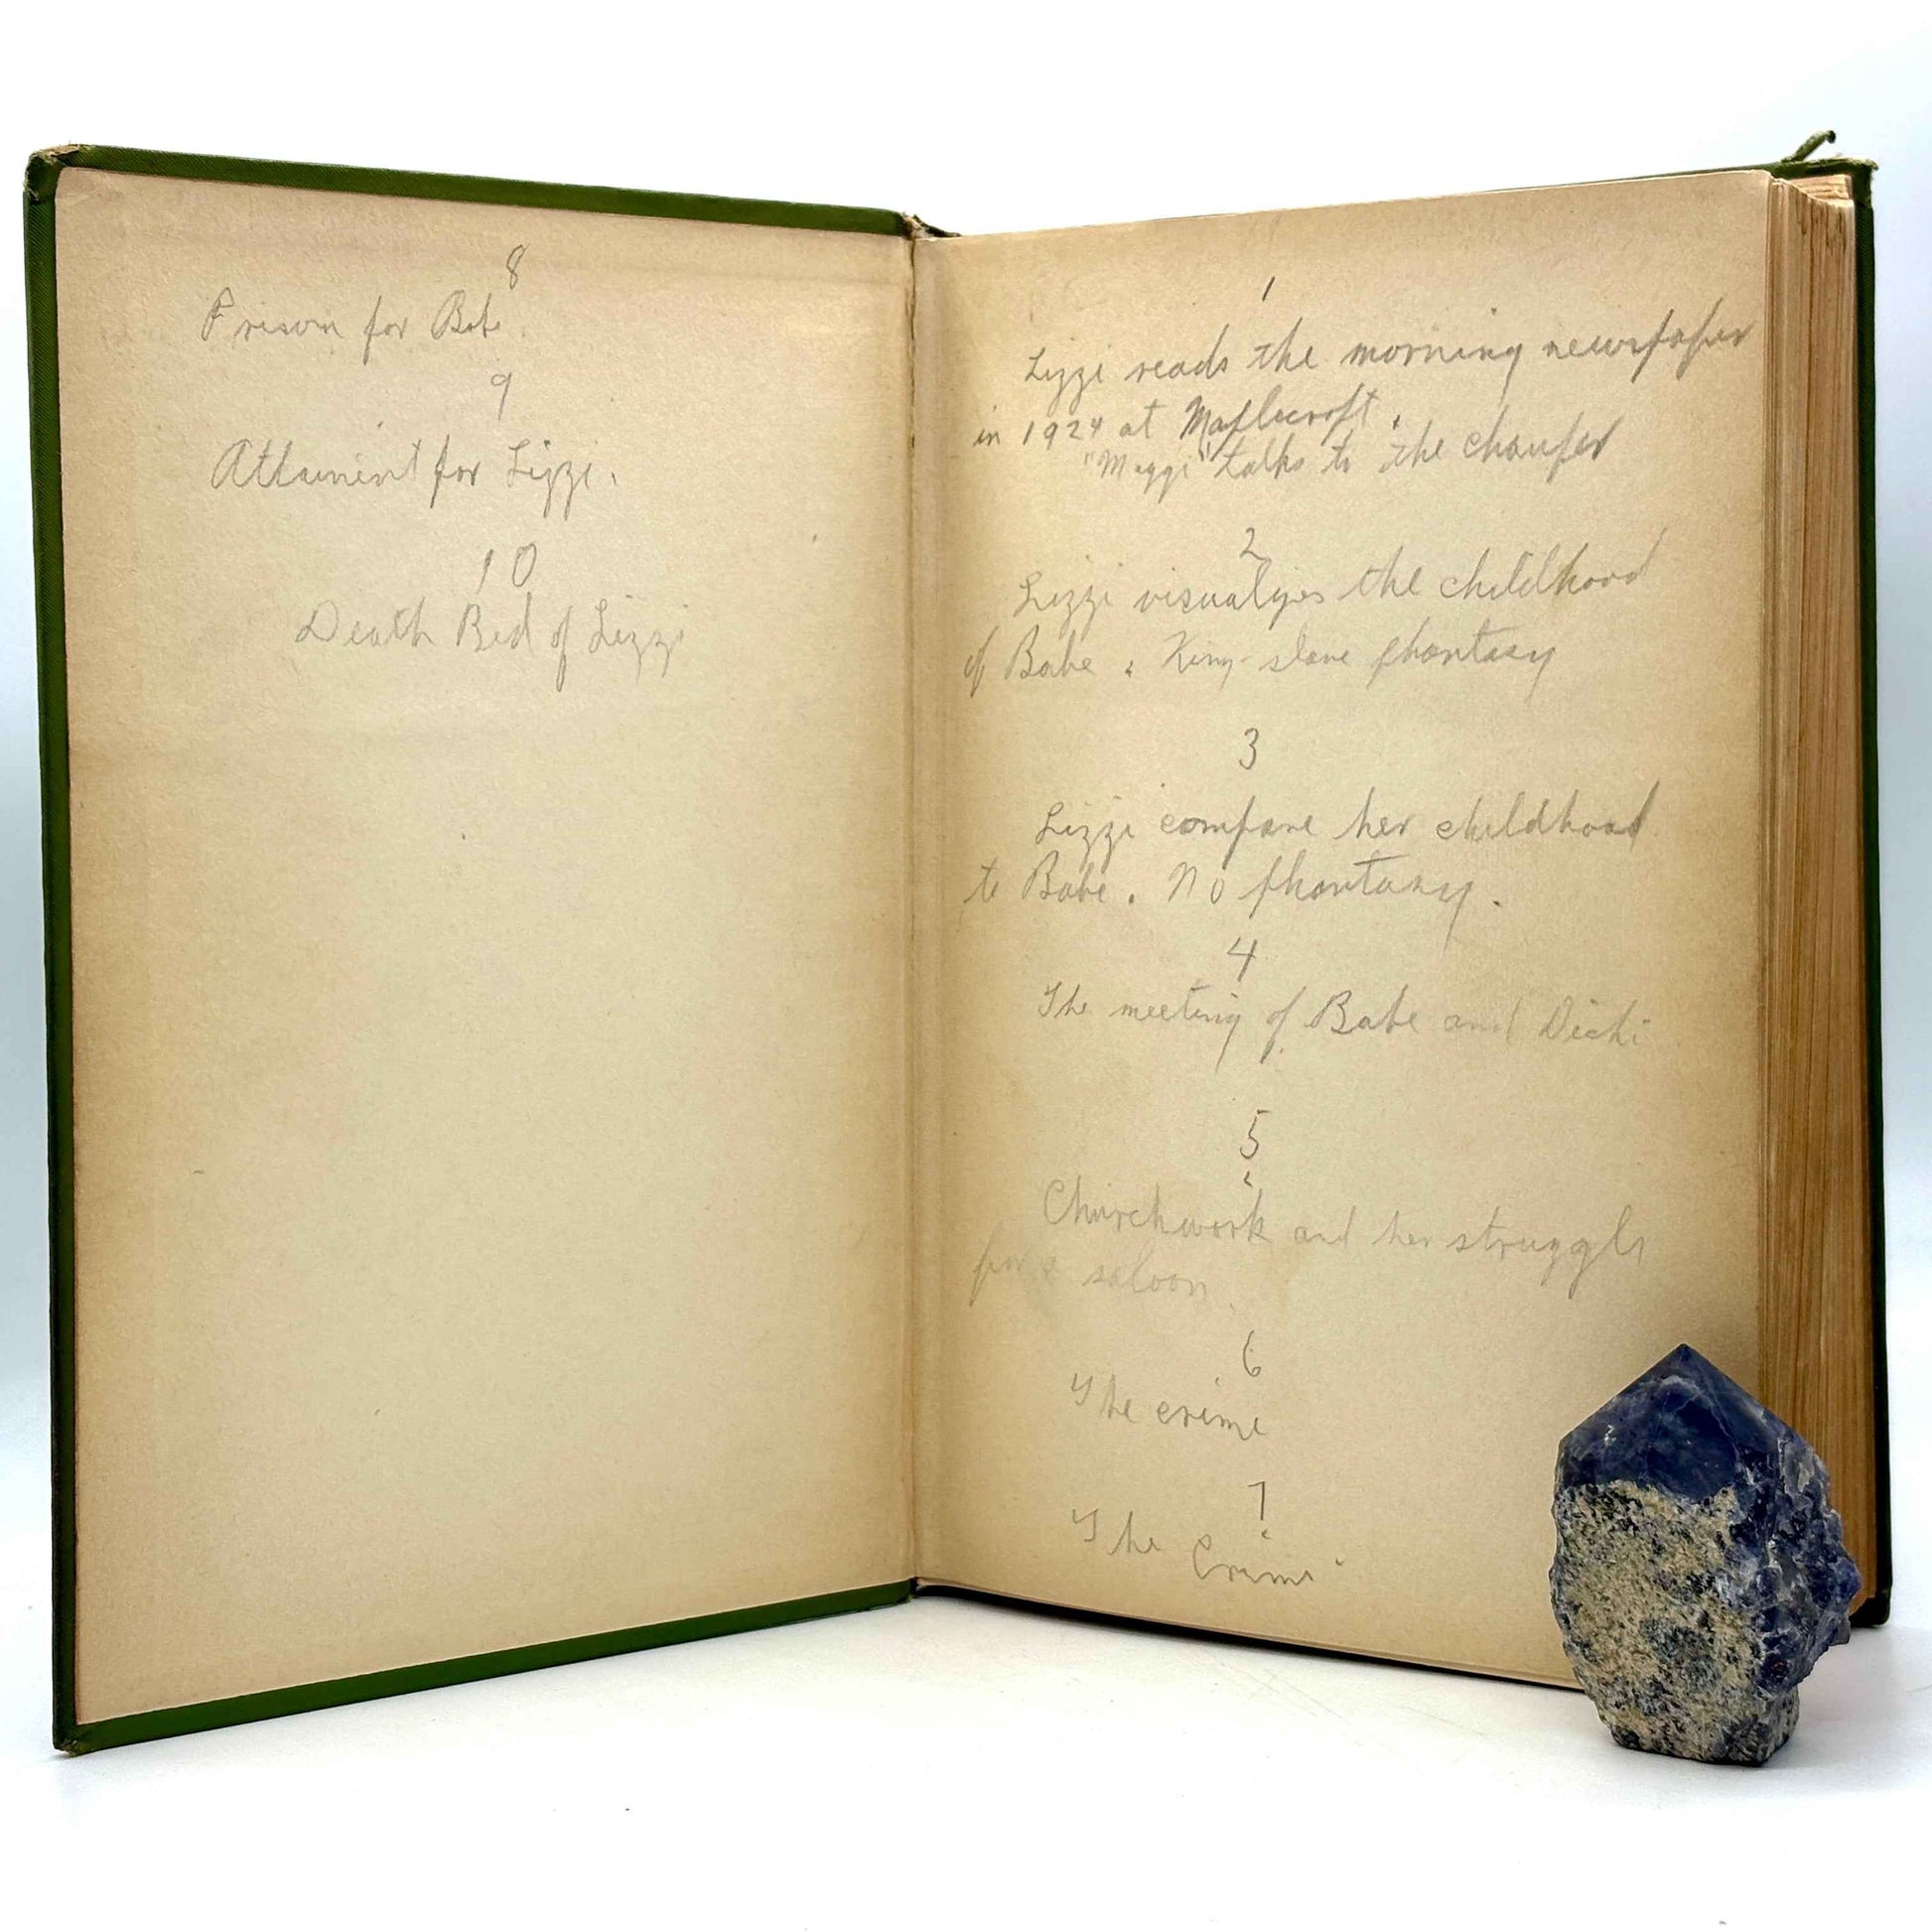 8
Prison for Babe
9
Attainment for Lizzi.
10
Death Bed of Lizzi
1
Lizzi reads the morning newspaper
in 1924 at Maplecroft.
"Maggi" talks to the chaufer
2
Lizzi visualizes the childhood
of Babe. King-slave phantasy
3
Lizzi compare her childhood
to Babe. No phantasy.
4
The meeting of Babe and Dicki
5
Churchwork and her struggle
for a saloon.
6
The crime
7
The Crime